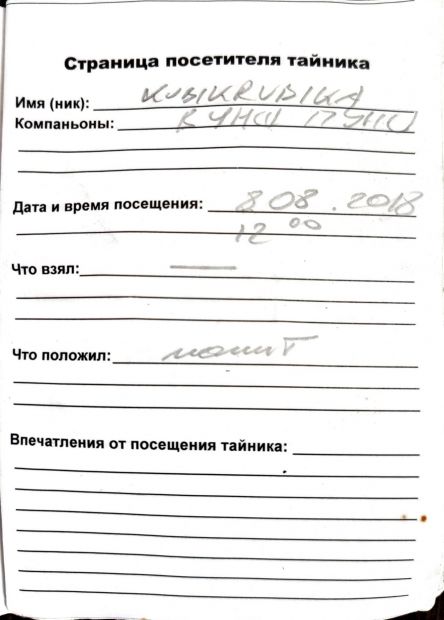 Страница посетителя тайника
Имя (ник): KUBIKRUBIKA
Компаньоны:
Дата и время посещения: 8 08 . 2018
12 00
Что взял: —
Что положил:
Впечатления от посещения тайника: